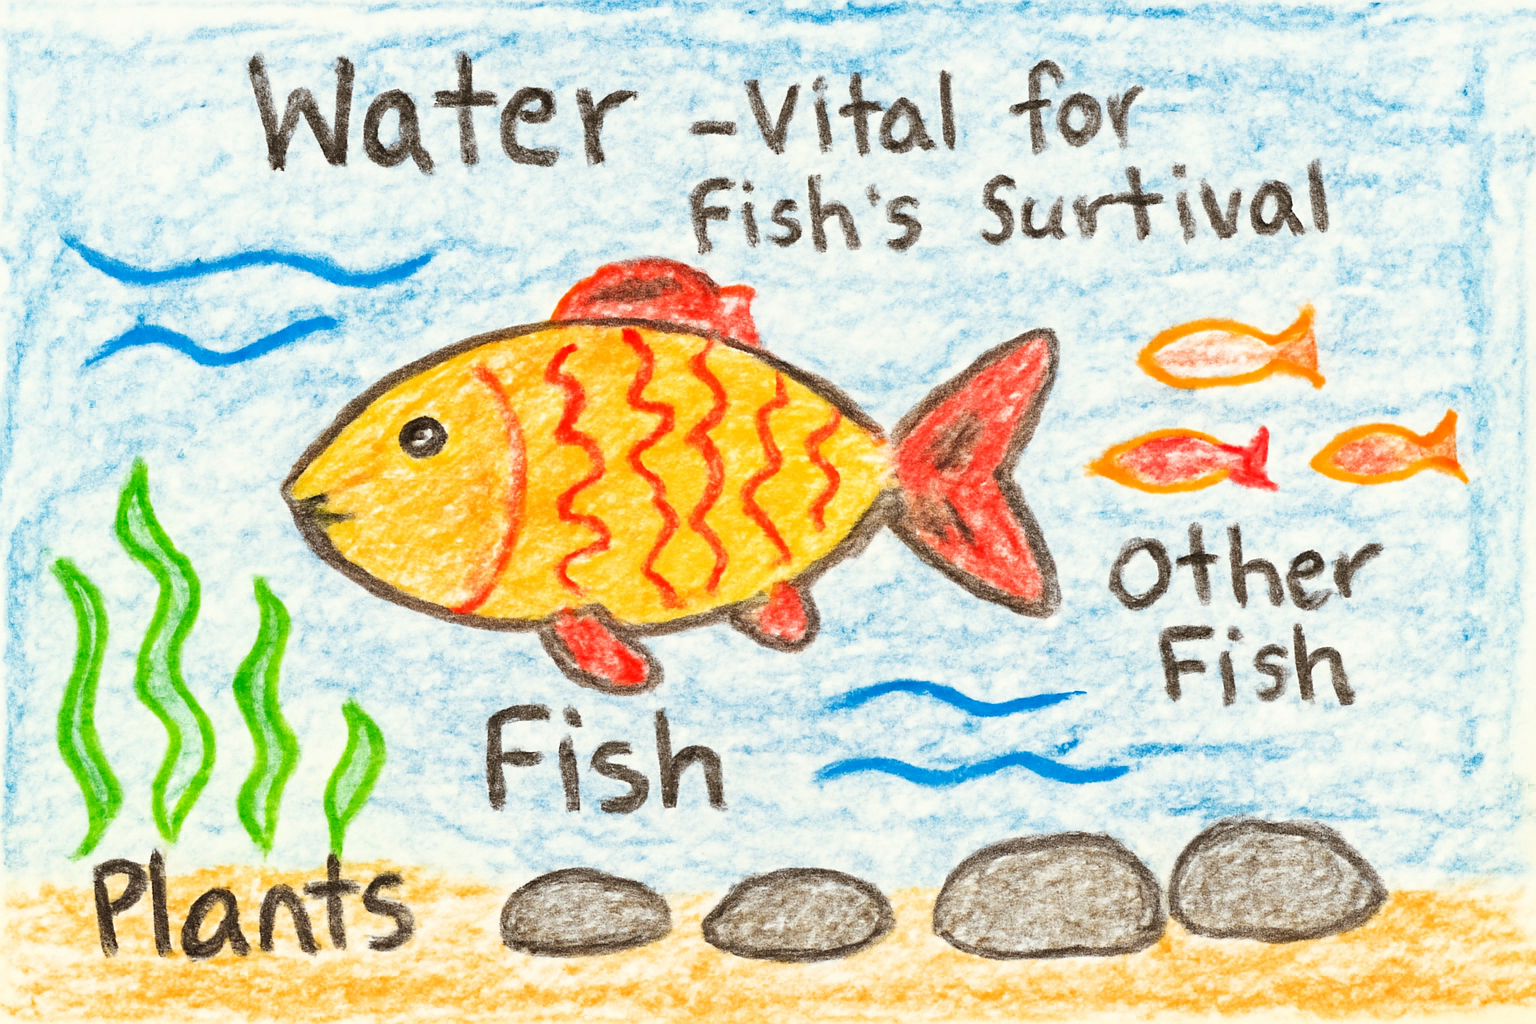 Water -Vital for
Fish's Surtival
Other
Fish
Fish
Plants